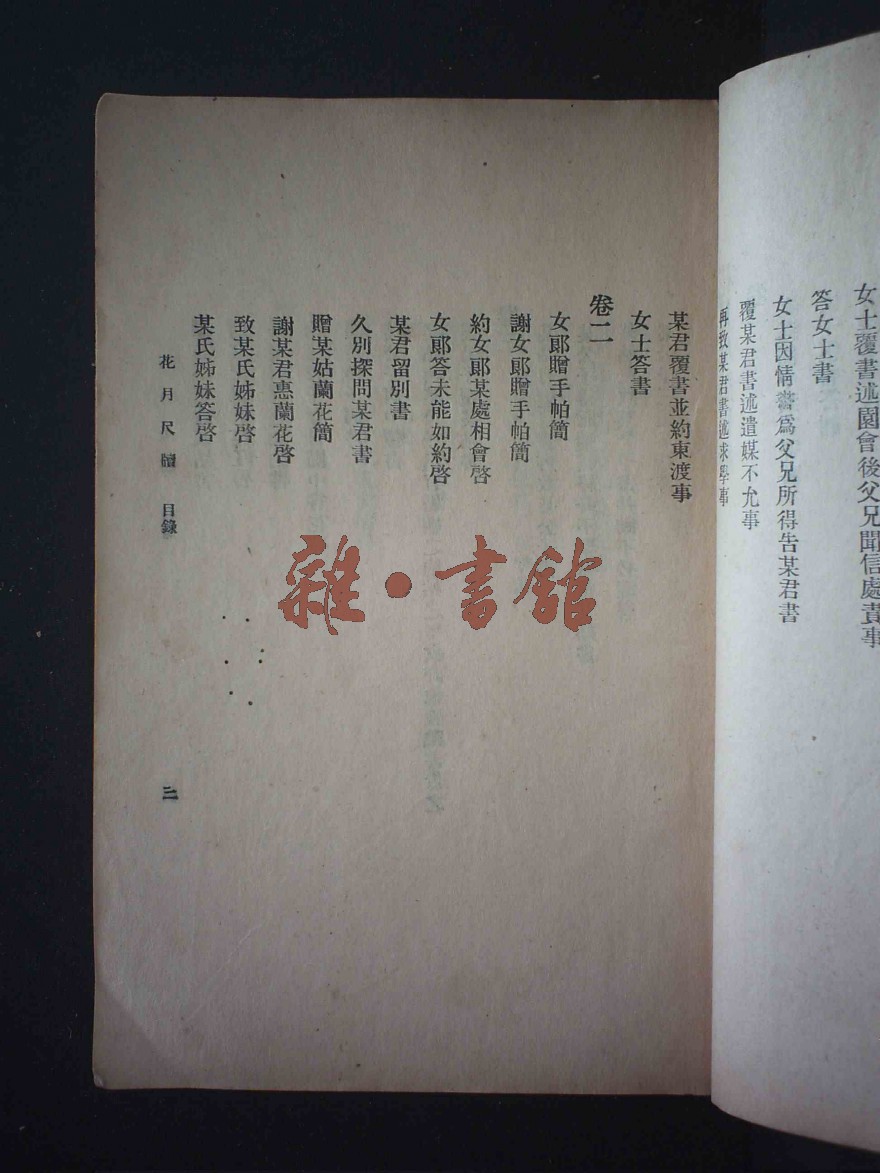 女士覆書述園會後父兄聞信處責事
答女士書
女士因情書爲父兄所得告某君書
覆某君書述遣媒不允事
再致某君書述求學事
某君覆書並約東渡事
女士答書
卷二
女郞贈手帕簡
謝女郞贈手帕簡
約女郞某處相會啓
女郞答未能如約啓
某君留別書
久別探問某君書
贈某姑蘭花簡
謝某君惠蘭花啓
致某氏姊妹啓
某氏姊妹答啓
花月尺牘 目錄
三
雜·書館